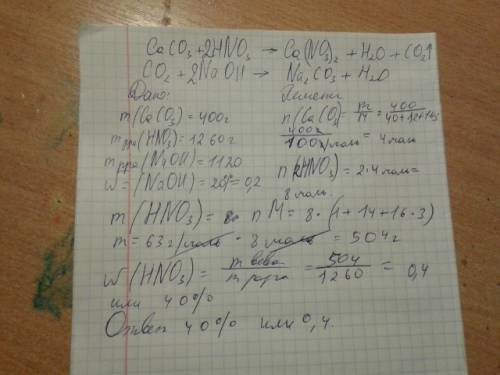 CaCO₃ + 2HNO₃ → Ca(NO₃)₂ + H₂O + CO₂↑
CO₂ + 2NaOH → Na₂CO₃ + H₂O
Дано:
m(CaCO₃) = 400г
m р-ра (HNO₃) = 1260г
m р-ра (NaOH) = 1120
w = (NaOH) = 20% = 0,2
n(CaCO₃) = m/M = 400/40+12+16·3
400г/100г/моль = 4 моль
n(HNO₃) = 2·4 моль =
8 моль.
m(HNO₃) = n M = 8·(1+14+16·3)
m = 63 г/моль · 8 моль = 504г
w(HNO₃) = m в-ва/m р-ра = 504/1260 = 0,4
или 40%
Ответ 40% или 0,4.